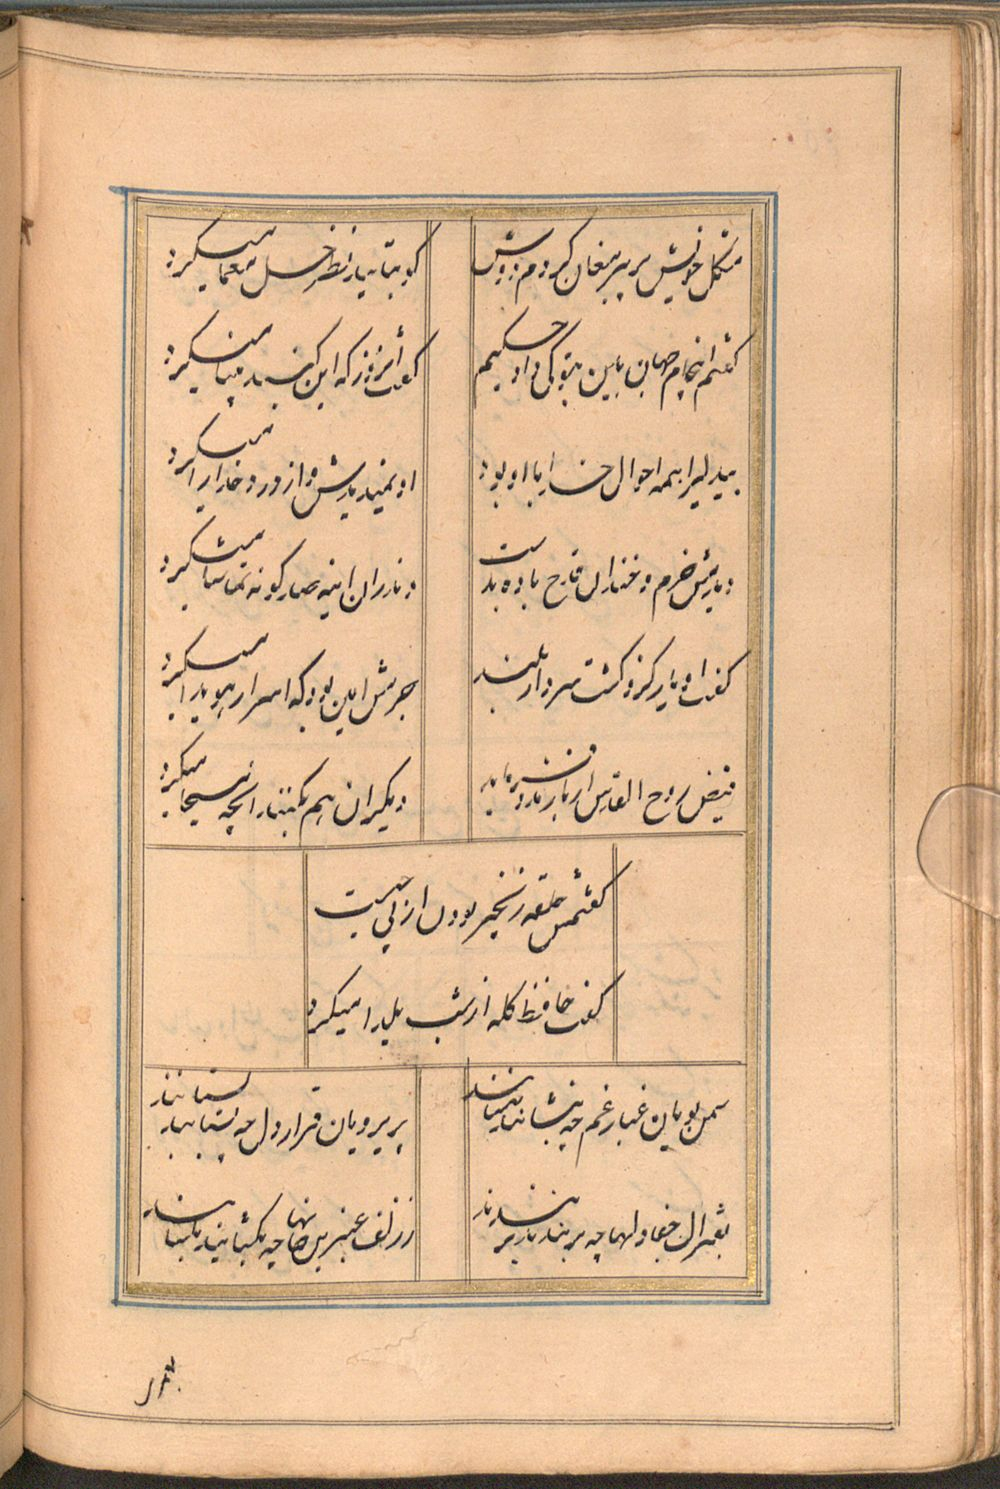 مشکل خویش بر پیر مغان کردم دوش
کو بتایید نظر حل معما میکرد
گفتم این جام جهان بین بتو کی داد حکیم
گفت آنروز که این گنبد مینا میکرد
بیدلی را همه احوال خدا با او بود
او نمیدیدش و از دور خدایا میکرد
دیدمش خرم و خندان قدح باده بدست
وندران اینه صد گونه تماشا میکرد
گفت او یار کزو گشت سر دار بلند
جرمش این بود که اسرار هویدا میکرد
فیض روح القدس ار باز مدد فرماید
دیگران هم بکنند آنچه مسیحا میکرد
گفتمش حلقه زنجیر بودن از پی چیست
گفت حافظ گله از شب یلدا میکرد
سمن بویان غبار غم چو بنشینند بنشانند
پریرویان قرار دل چو بستیزند بستانند
بفتراک جفا دلها چو بربندند بربندند
ز زلف عنبرین جانها چو بگشایند بفشانند